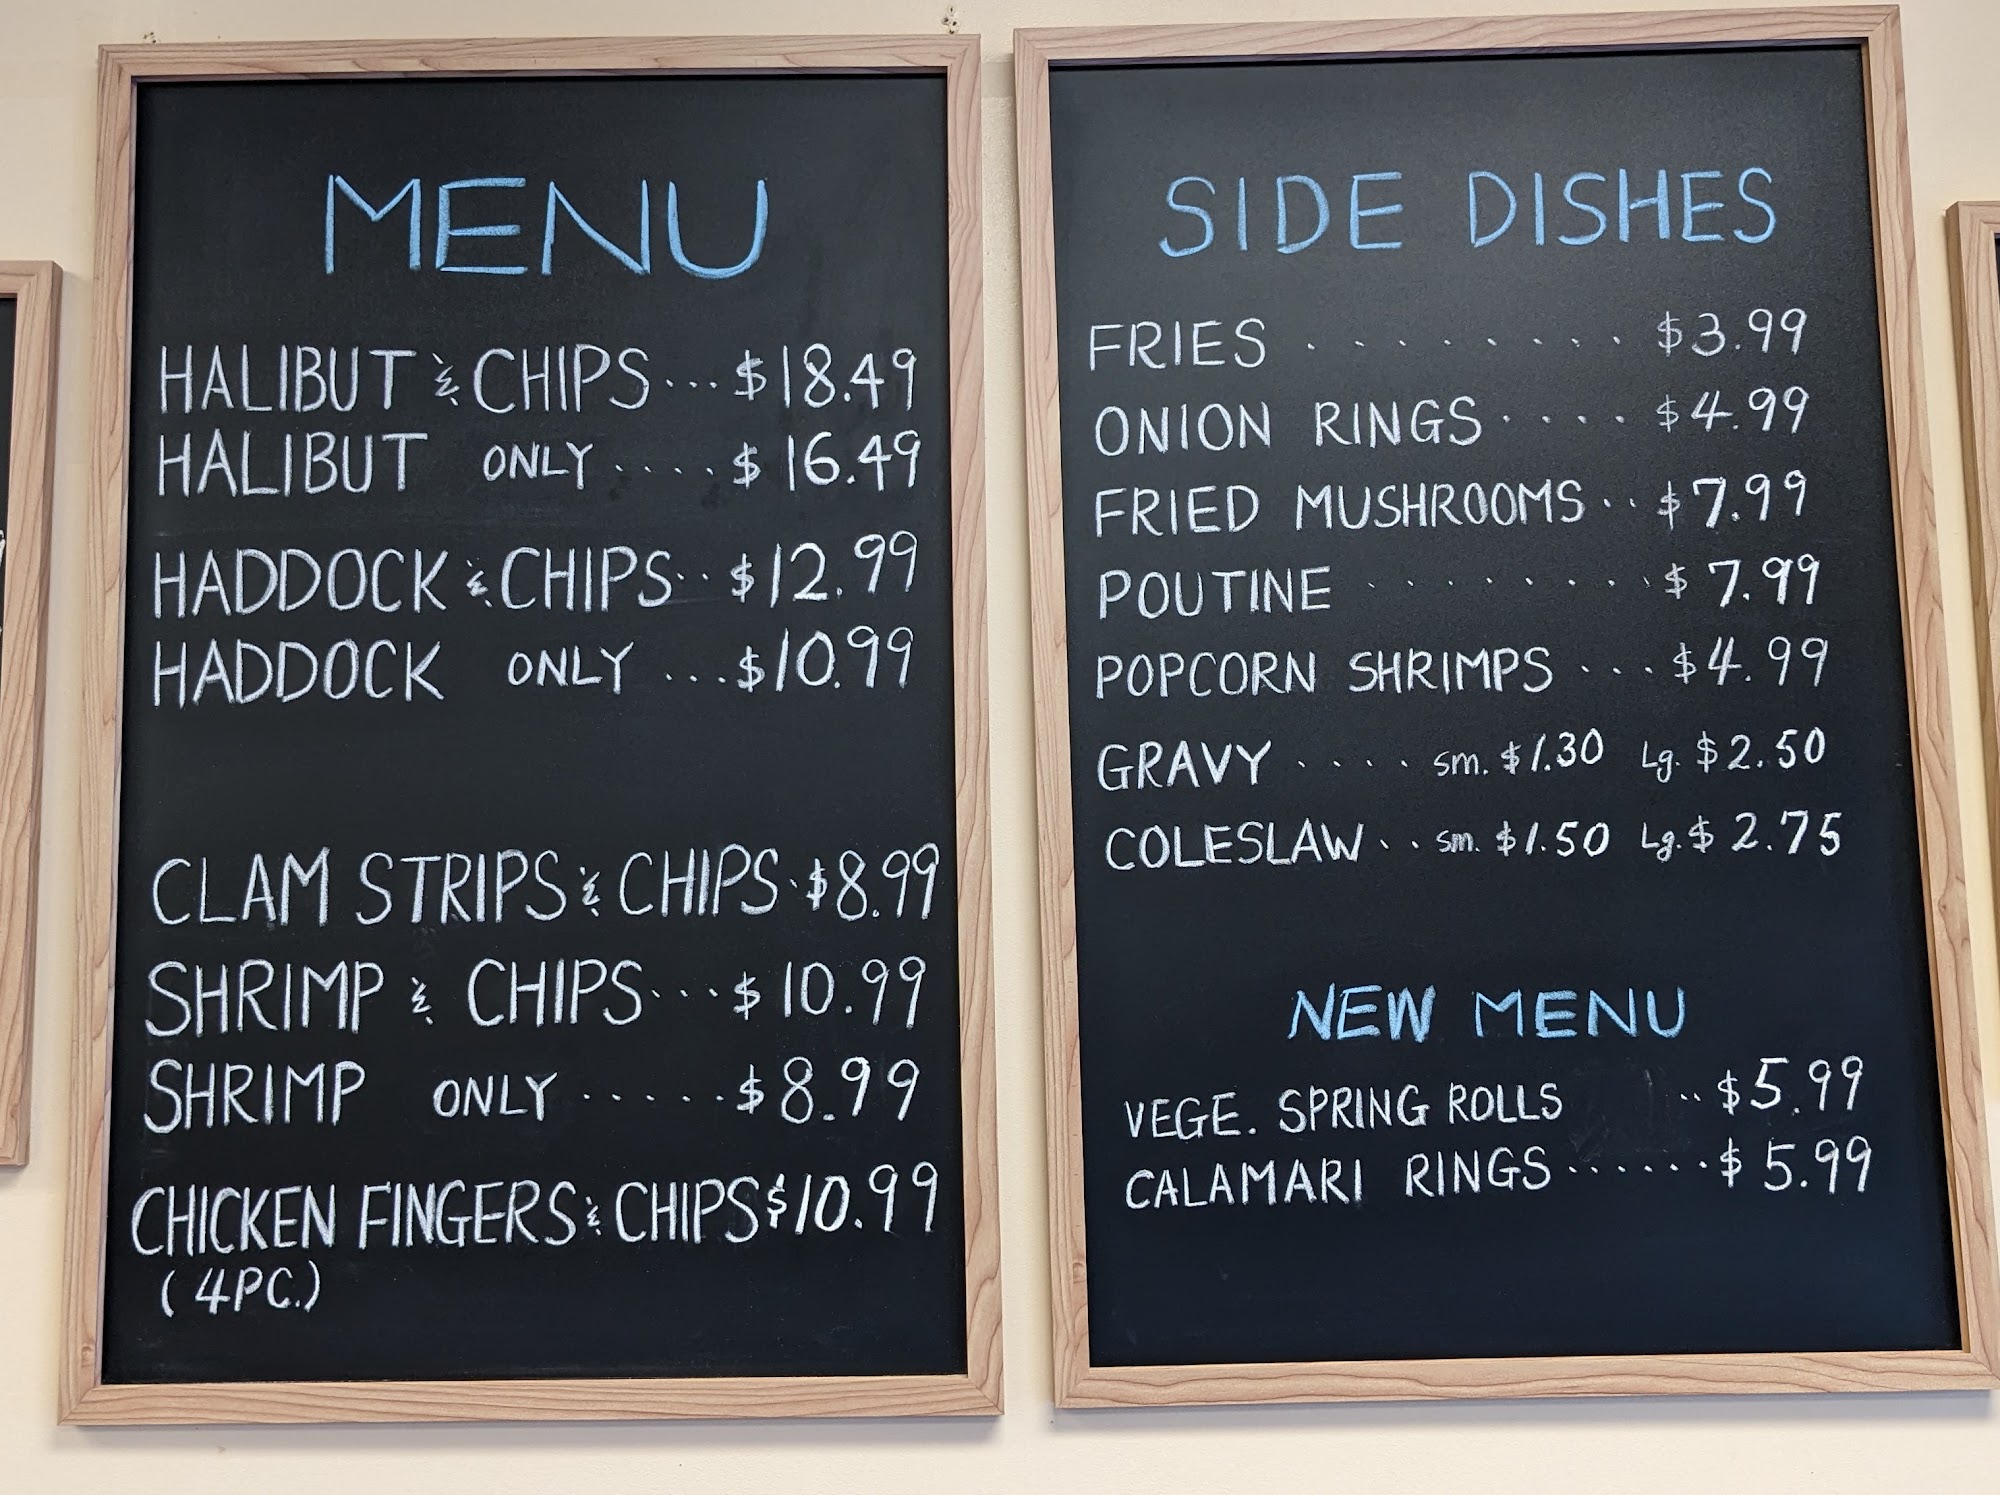 MENU
HALIBUT & CHIPS...$18.49
HALIBUT ONLY....$16.49
HADDOCK & CHIPS..$12.99
HADDOCK ONLY...$10.99
CLAM STRIPS & CHIPS.$8.99
SHRIMP & CHIPS...$10.99
SHRIMP ONLY.....$8.99
CHICKEN FINGERS & CHIPS $10.99
(4PC.)
SIDE DISHES
FRIES.........$3.99
ONION RINGS....$4.99
FRIED MUSHROOMS..$7.99
POUTINE........$7.99
POPCORN SHRIMPS...$4.99
GRAVY....sm. $1.30 Lg. $2.50
COLESLAW..sm. $1.50 Lg. $2.75
NEW MENU
VEGE. SPRING ROLLS ..$5.99
CALAMARI RINGS......$5.99